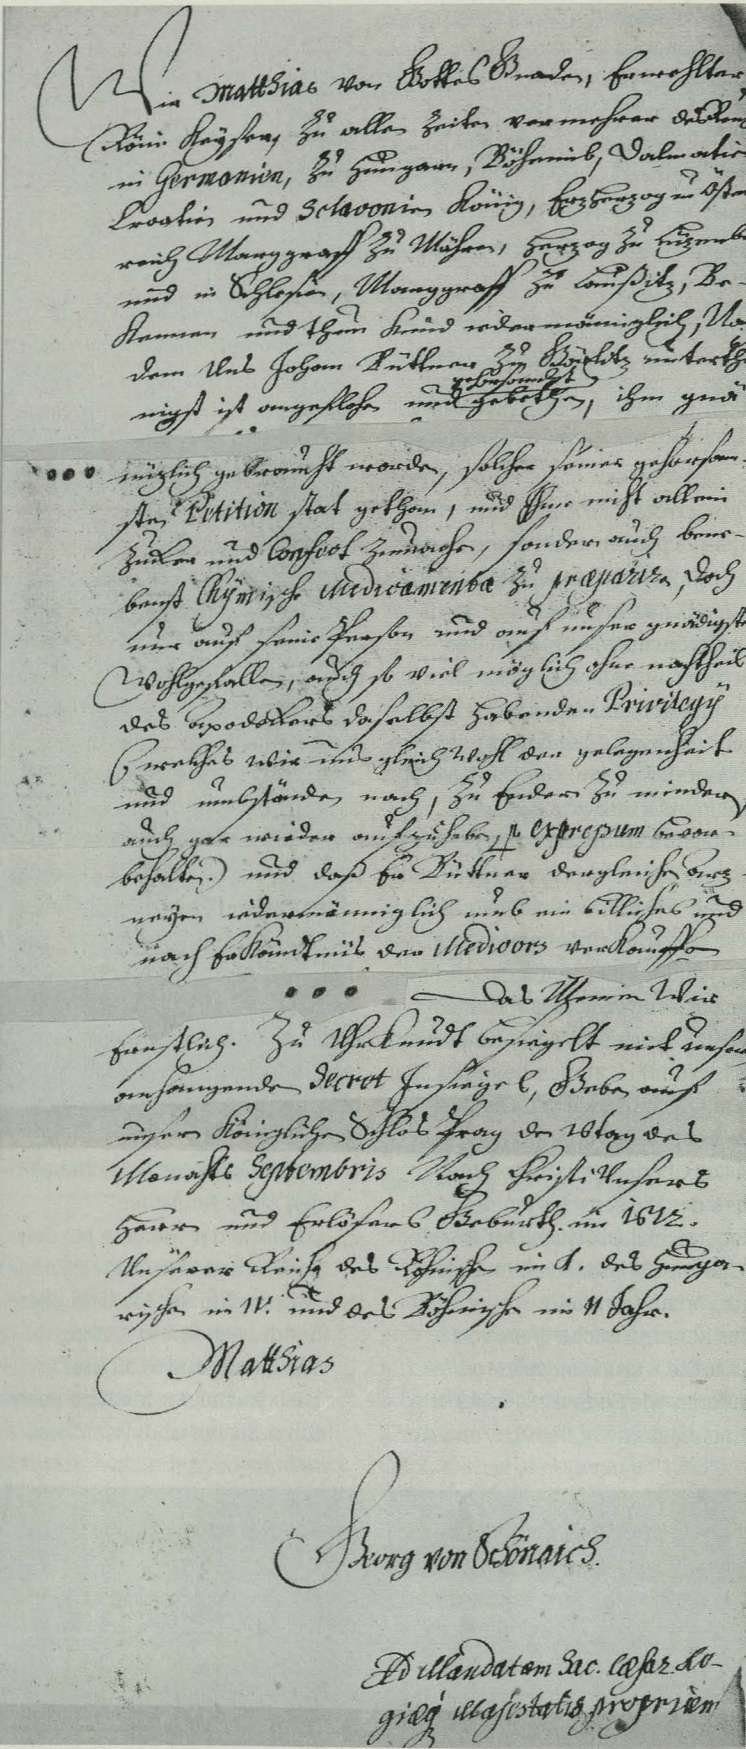 Wir Matthias von Gottes Gnaden, Erwehlter
Röm: Keyser, Zu allen Zeiten vermehrer des Reic
in Germanien, Zu Hungarn, Böheimb, Dalmatie
Croatien und Sclavonien König, Erzherzog zu Öster
reich Marggraff Zu Mähren, Herzog Zu Luzemb
und in Schlesien, Marggraff Zu Laußitz, Be-
kennen und thun kund iedermänniglich, Na
dem Uns Johan Rüttner Zu Görlitz unterthe
gehorsambst
nigst ist angeflohen und gebethen, ihm gnä
... nüzlich gebraucht worden, solcher seiner gehorsam-
sten Petition stat gethan, und Ihme nicht allein
Zuker und Confect Zumachen, sondern auch bene-
benst Chÿmische Medicamenta Zu præparirn, doch
nur auf seine Person und auf unser gnädigste
Wohlgefallen, auch so viel möglich ohne nachtheil
des Apodekers daselbst habenden Privilegÿ
(welches wir uns gleich wohl der gelegenheit
und umbstände nach, Zu Endern Zu mindern,
auch gar wieder aufzuheben, p expressum bevor
behalten.) und daß Er Rüttner dergleichen Arz-
neyen iedermänniglich umb ein billiches und
nach Erkändtnüs der Medicors verkauffen
... Das Meinen Wir
Ernstlich. Zu Uhrkundt besiegelt mit unsern
anhangenden Secret Insiegel, Geben auf
unsern Königlichen Schlos Prag den tag des
Monahts Septembris Nach Christi Unsers
Herrn und Erlösers Geburth. im 1612.
Unserer Reiche des Römischen im 1. des Hunga-
rischen im und des Böhmischen im Jahr.
Matthias
Georg von Schönaich.
Ad Mandatum Sac. Cæsar. Re-
giæq Majestatis proprium